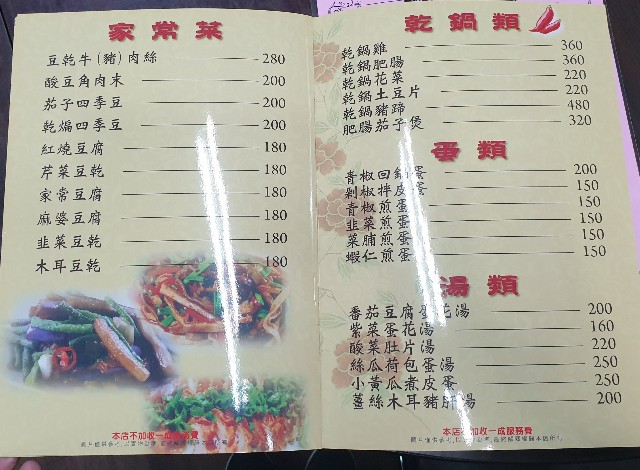 家常菜
豆乾牛(豬)肉絲 280
酸豆角肉末 200
茄子四季豆 200
乾煸四季豆 200
紅燒豆腐 180
芹菜豆乾 180
家常豆腐 180
麻婆豆腐 180
韭菜豆乾 180
木耳豆乾 180
本店不加收一成服務費
乾鍋類
乾鍋雞 360
乾鍋肥腸 360
乾鍋花菜 220
乾鍋土豆片 220
乾鍋豬蹄 480
肥腸茄子煲 320
蛋類
青椒回鍋蛋 200
剁椒拌皮蛋 150
青椒煎蛋 150
韭菜煎蛋 150
菜脯煎蛋 150
蝦仁煎蛋 150
湯類
番茄豆腐蛋花湯 200
紫菜蛋花湯 160
酸菜肚片湯 220
絲瓜荷包蛋湯 250
小黃瓜煮皮蛋 250
薑絲木耳豬肝湯 200
本店不加收一成服務費